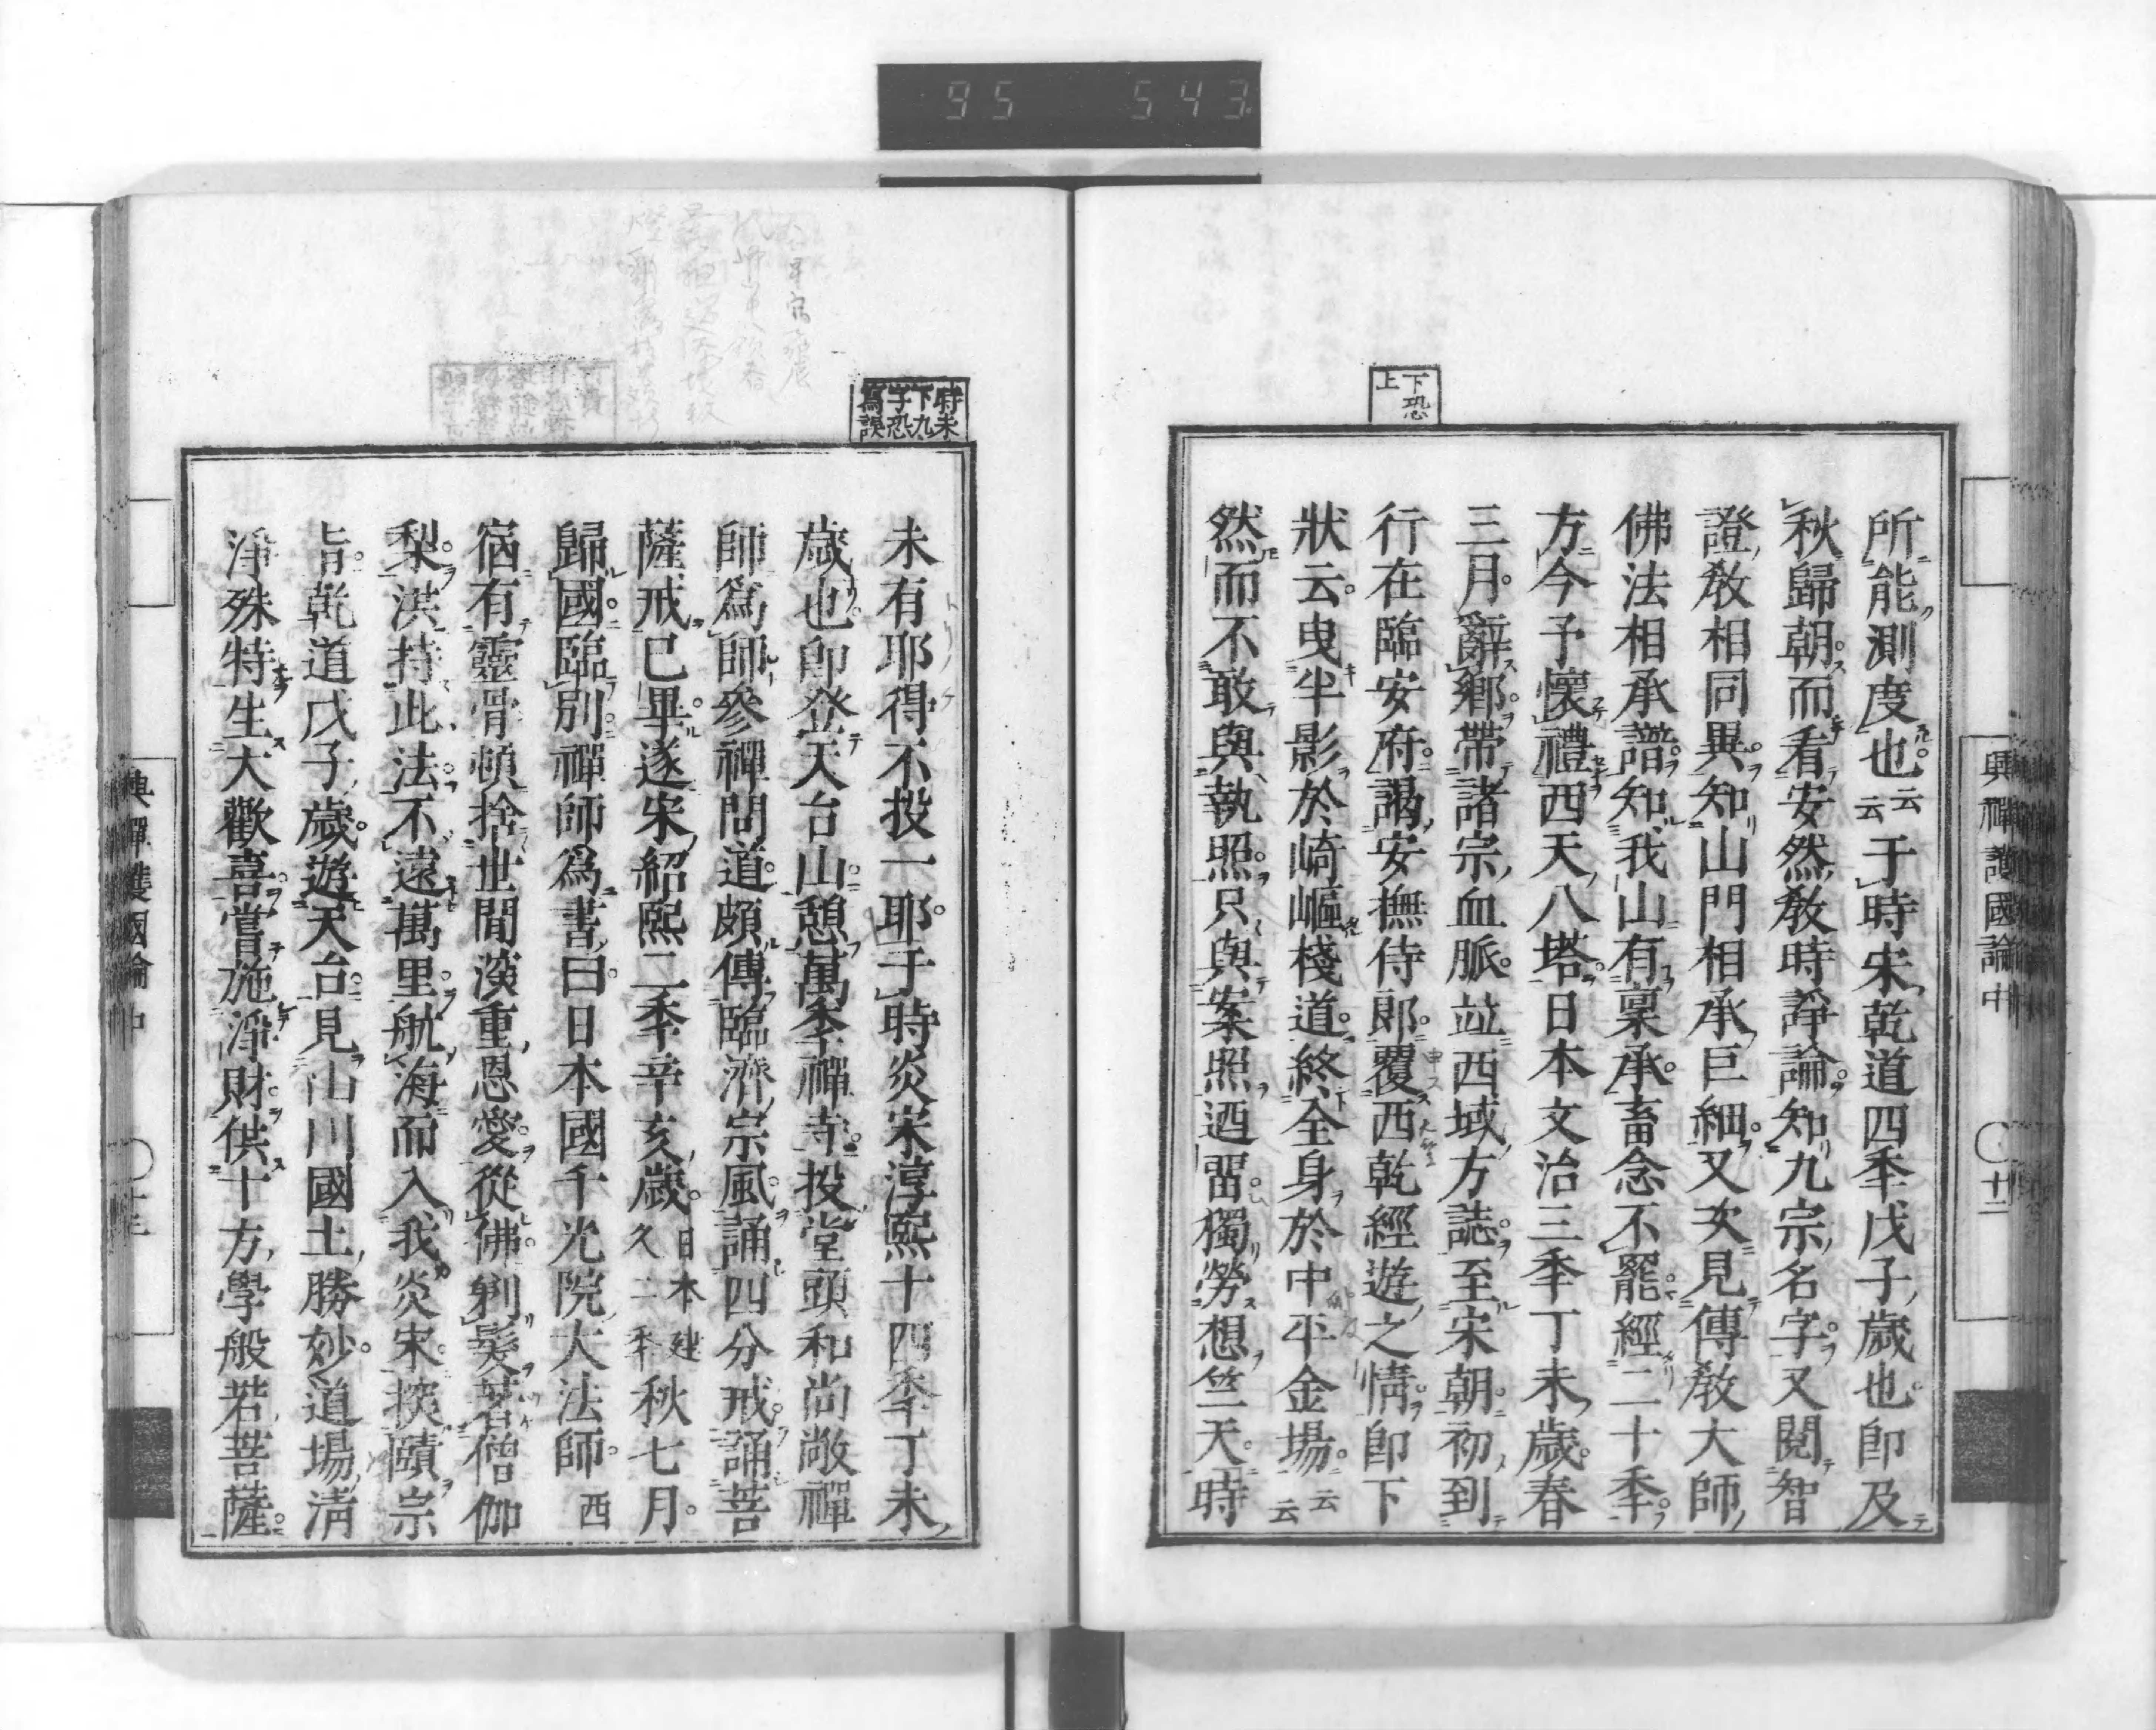 95 543
下恐
上
所能測度也云云于時宋乾道四秊戊子歲也卽及
秋歸朝而看安然敎時諍論知九宗名字又閱智
證敎相同異知山門相承巨細又次見傳敎大師
佛法相承譜知我山有稟承畜念不罷經二十秊
方今予懷禮西天八塔日本文治三秊丁未歲春
三月辭鄉帶諸宗血脈竝西域方誌至宋朝初到
行在臨安府謁安撫侍郞覆西乾經遊之情卽下
狀云曳半影於崎嶇棧道終全身於中平金場云云
然而不敢與執照只與案照迺留獨勞想竺天時
興禪護國論中 〇十二
時未
下九
字恐
寫誤
未有耶得不投一耶于時炎宋淳熙十四秊丁未
歲也卽登天台山憩萬秊禪寺投堂頭和尚敞禪
師爲師參禪問道頗傳臨濟宗風誦四分戒誦菩
薩戒已畢遂宋紹熙二秊辛亥歲日本建久二秊秋七月
歸國臨別禪師爲書曰日本國千光院大法師西
宿有靈骨頓捨世間深重恩愛從佛剃髮著僧伽
梨洪持此法不遠萬里航海而入我炎宋探賾宗
旨乾道戊子歲遊天台見山川國土勝妙道場淸
淨殊特生大歡喜嘗施淨財供十方學般若菩薩
興禪護國論中